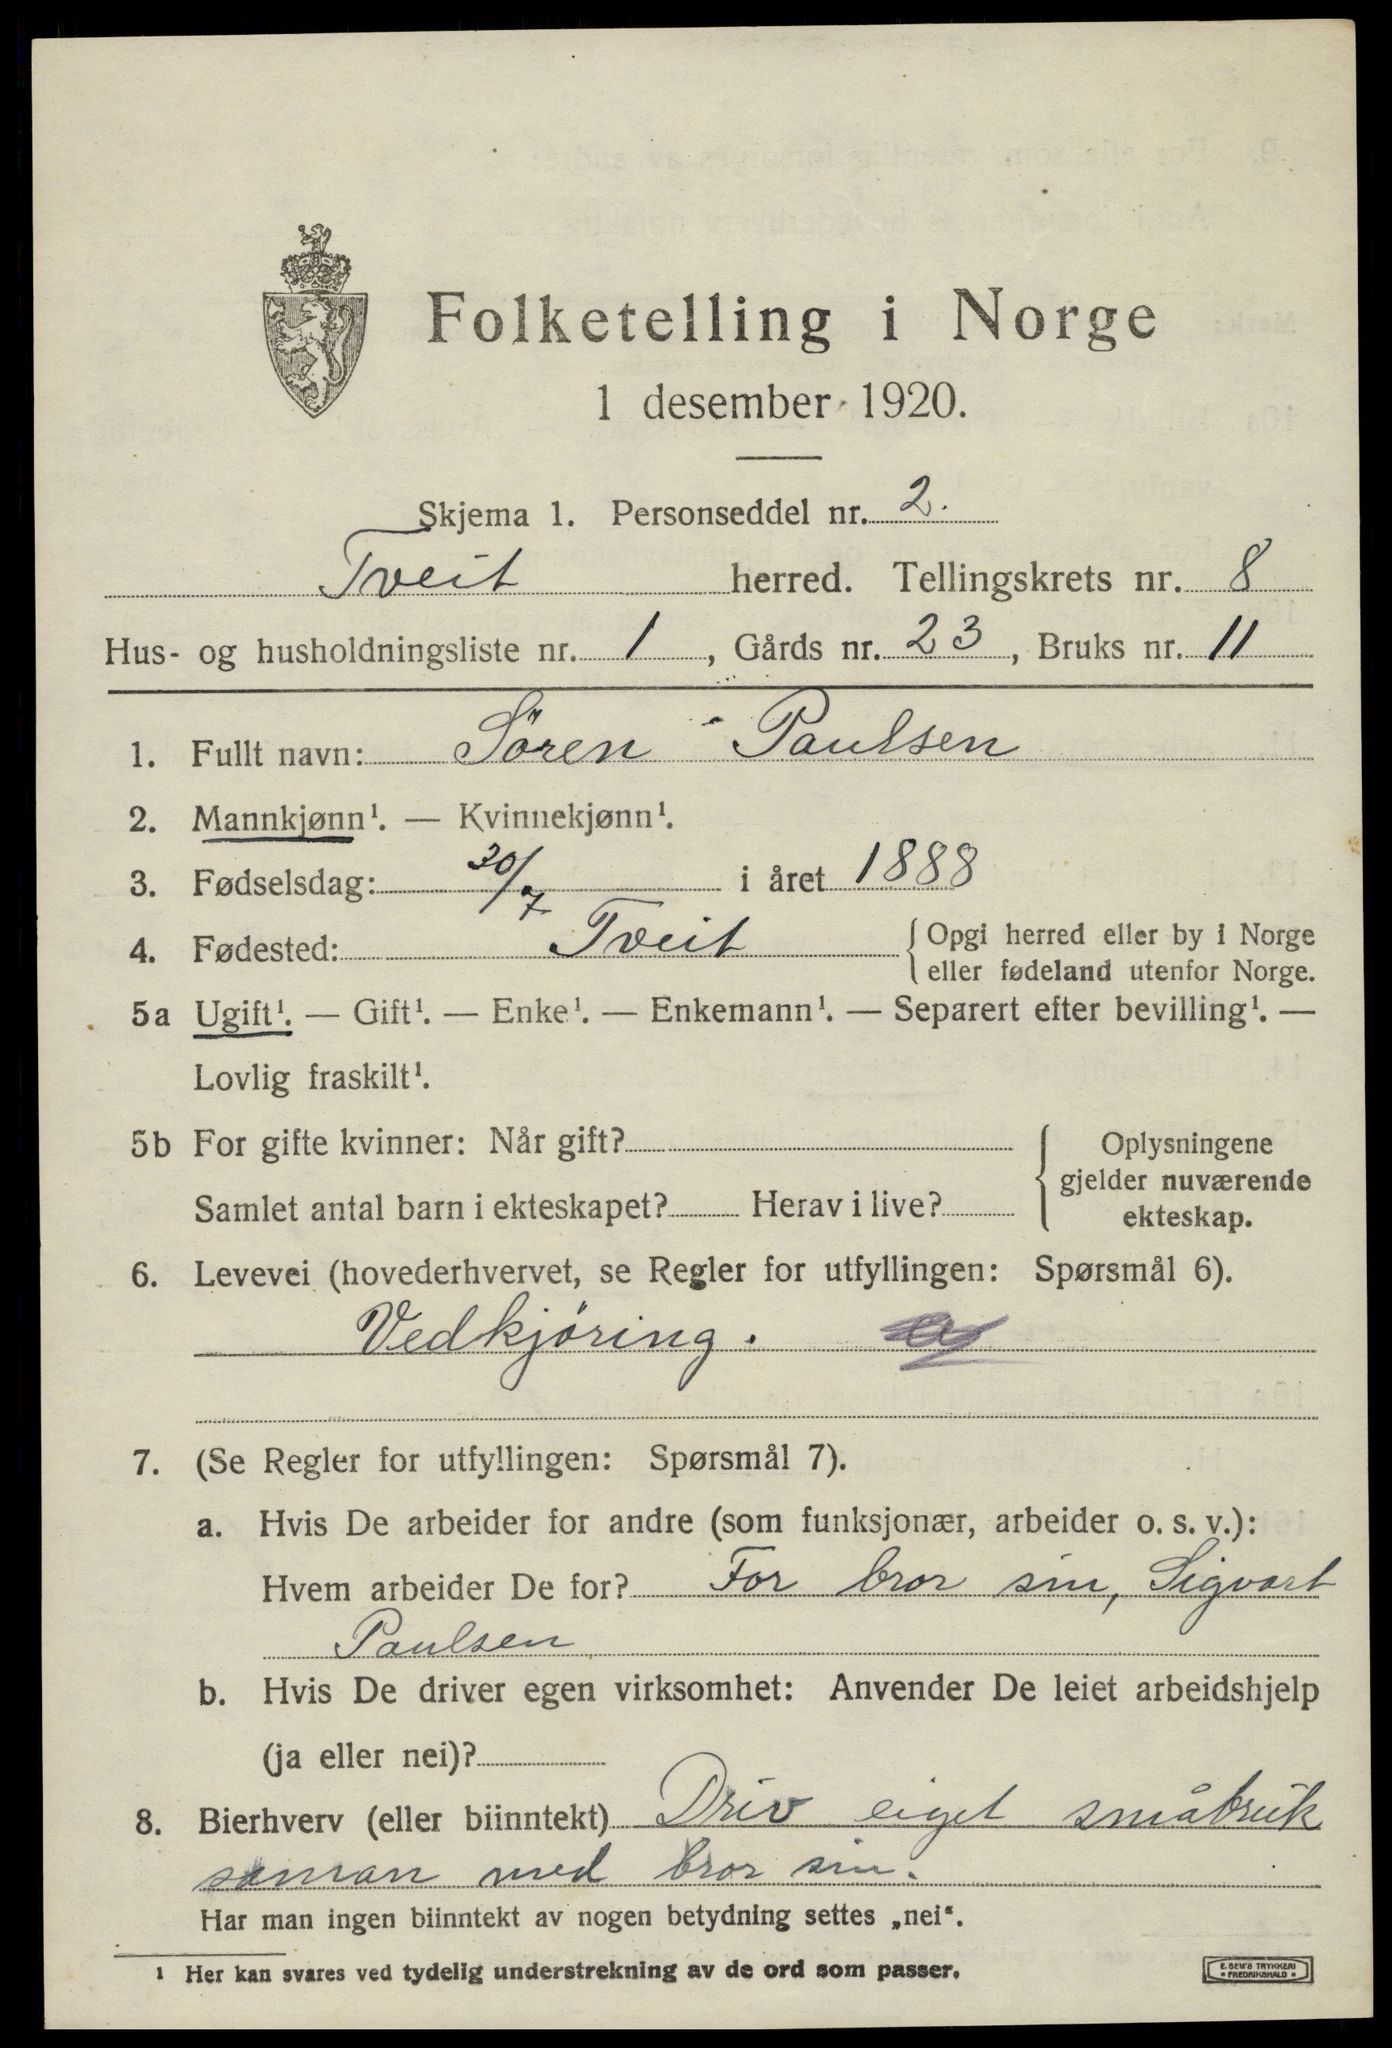 Folketelling i Norge
1 desember 1920.
Skjema 1. Personseddel nr. 2.
Tveit herred. Tellingskrets nr. 8
Hus- og husholdningsliste nr. 1, Gårds nr. 23, Bruks nr. 11
1. Fullt navn: Sören Paulsen
2. Mannkjønn¹. — Kvinnekjønn¹.
3. Fødselsdag: 30/7 i året 1888
4. Fødested: Tveit { Opgi herred eller by i Norge
eller fødeland utenfor Norge.
5a Ugift¹. — Gift¹. — Enke¹. — Enkemann¹. — Separert efter bevilling¹. —
Lovlig fraskilt¹.
5b For gifte kvinner: Når gift? { Oplysningene
gjelder nuværende
Samlet antal barn i ekteskapet? Herav i live? ekteskap.
6. Levevei (hovederhvervet, se Regler for utfyllingen: Spørsmål 6).
Vedkjöring.
7. (Se Regler for utfyllingen: Spørsmål 7).
a. Hvis De arbeider for andre (som funksjonær, arbeider o. s. v.):
Hvem arbeider De for? For bror sin, Sigvart
Paulsen
b. Hvis De driver egen virksomhet: Anvender De leiet arbeidshjelp
(ja eller nei)?
8. Bierhverv (eller biinntekt) Driv eiget småbruk
saman med bror sin.
Har man ingen biinntekt av nogen betydning settes „nei“.
¹ Her kan svares ved tydelig understrekning av de ord som passer.
E. SEM'S TRYKKERI
• FREDRIKSHALD •